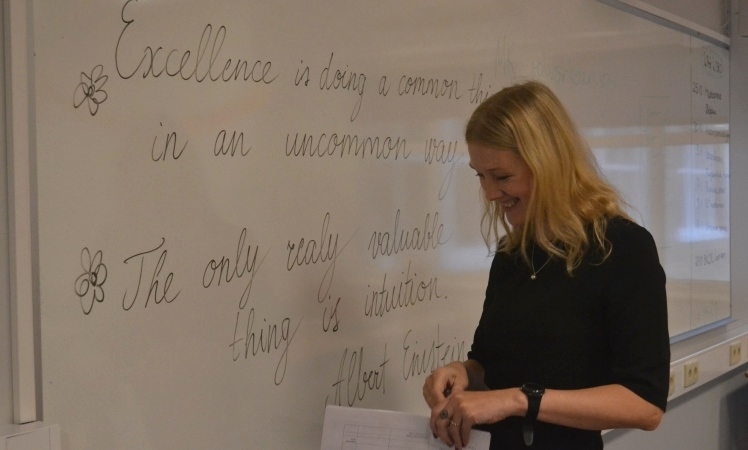 Excellence is doing a common thi
in an uncommon way
The only realy valuable
thing is intuition.
Albert Einstein